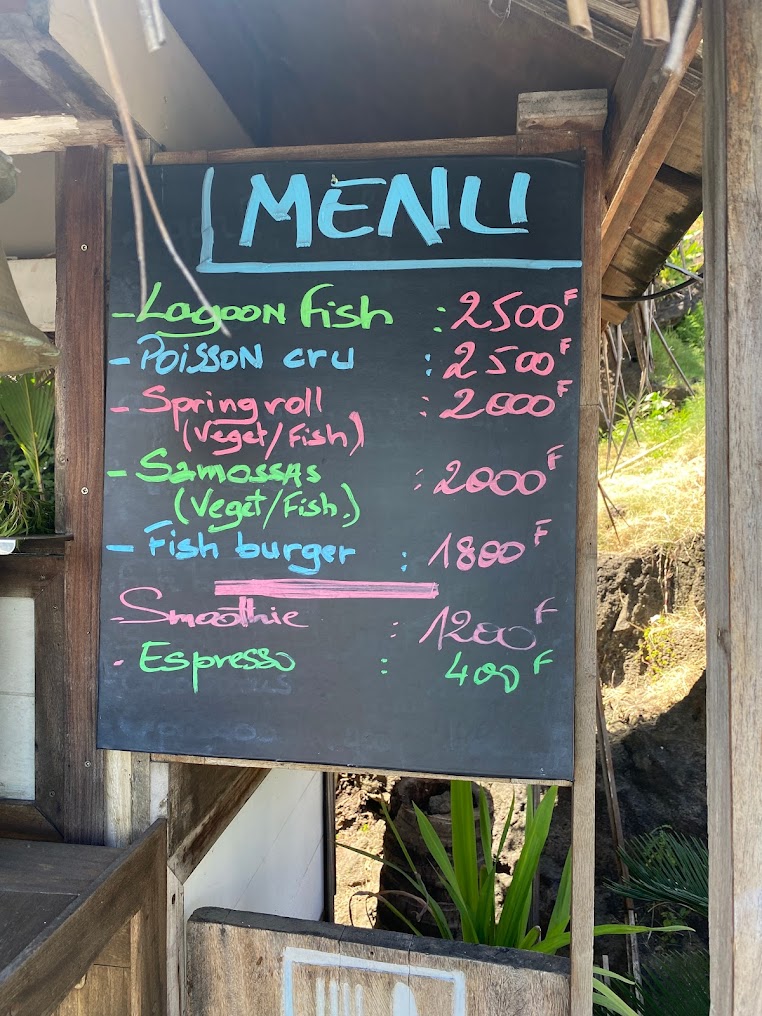 MENU
- Lagoon fish : 2500 F
- POISSON cru : 2500 F
- Spring roll : 2000 F
(Veget/Fish)
- SamossAs : 2000 F
(Veget/Fish.)
- Fish burger : 1800 F
- Smoothie : 1200 F
- Espresso : 400 F